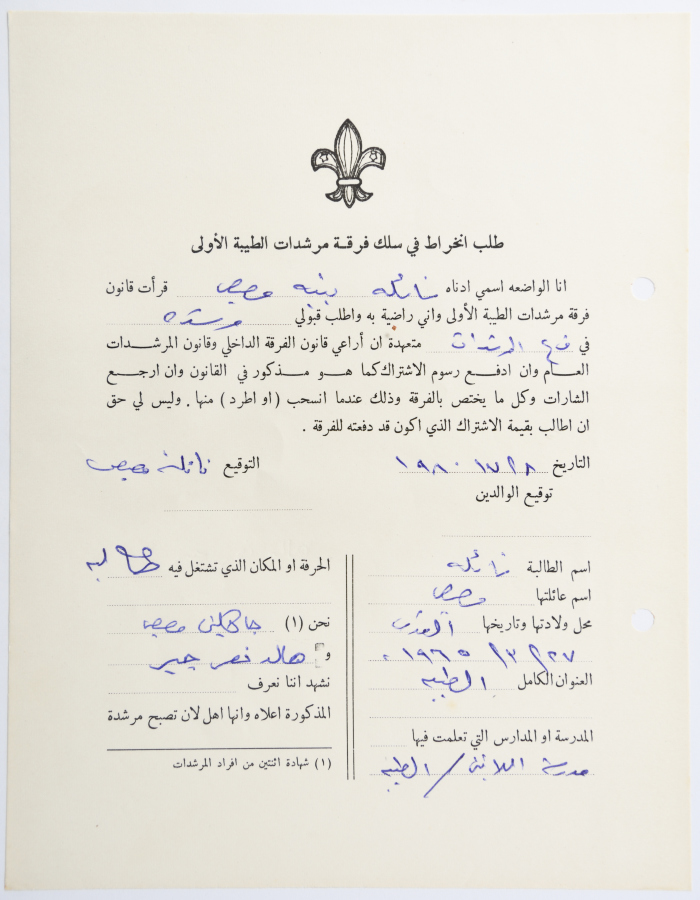 طلب انخراط في سلك فرقة مرشدات الطيبة الأولى
انا الواضعه اسمي ادناه نائله بنيه مصيص قرأت قانون
فرقة مرشدات الطيبة الأولى واني راضية به واطلب قبولي مرشده
في فرع المرشدات متعهدة ان أراعي قانون الفرقة الداخلي وقانون المرشدات
العام وان ادفع رسوم الاشتراك كما هو مذكور في القانون وان ارجع
الشارات وكل ما يختص بالفرقة وذلك عندما انسحب (او اطرد) منها. وليس لي حق
ان اطالب بقيمة الاشتراك الذي اكون قد دفعته للفرقة.
التاريخ ٢٨/ ٧/ ١٩٨٠ التوقيع نائله مصيص
توقيع الوالدين
اسم الطالبة نائله
اسم عائلتها مصيص
محل ولادتها وتاريخها القدس
٢٧/ ٣/ ١٩٦٥
العنوان الكامل الطيبه
المدرسة او المدارس التي تعلمت فيها
مدرسة اللاتين / الطيبه
الحرفة او المكان الذي تشتغل فيه طالبه
نحن (١) جاكلين مصيص
و هالد نصر جبر
نشهد اننا نعرف
المذكورة اعلاه وانها اهل لان تصبح مرشدة
(١) شهادة اثنتين من افراد المرشدات